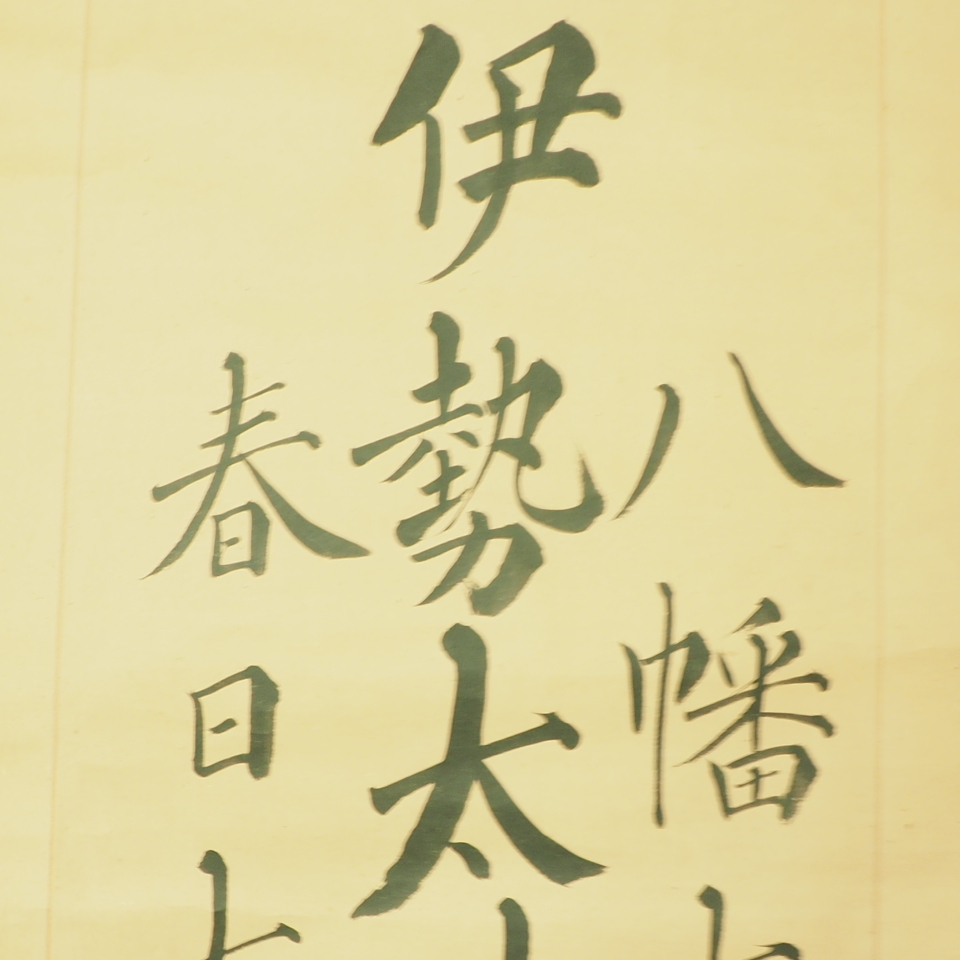 八幡
伊勢太
春日